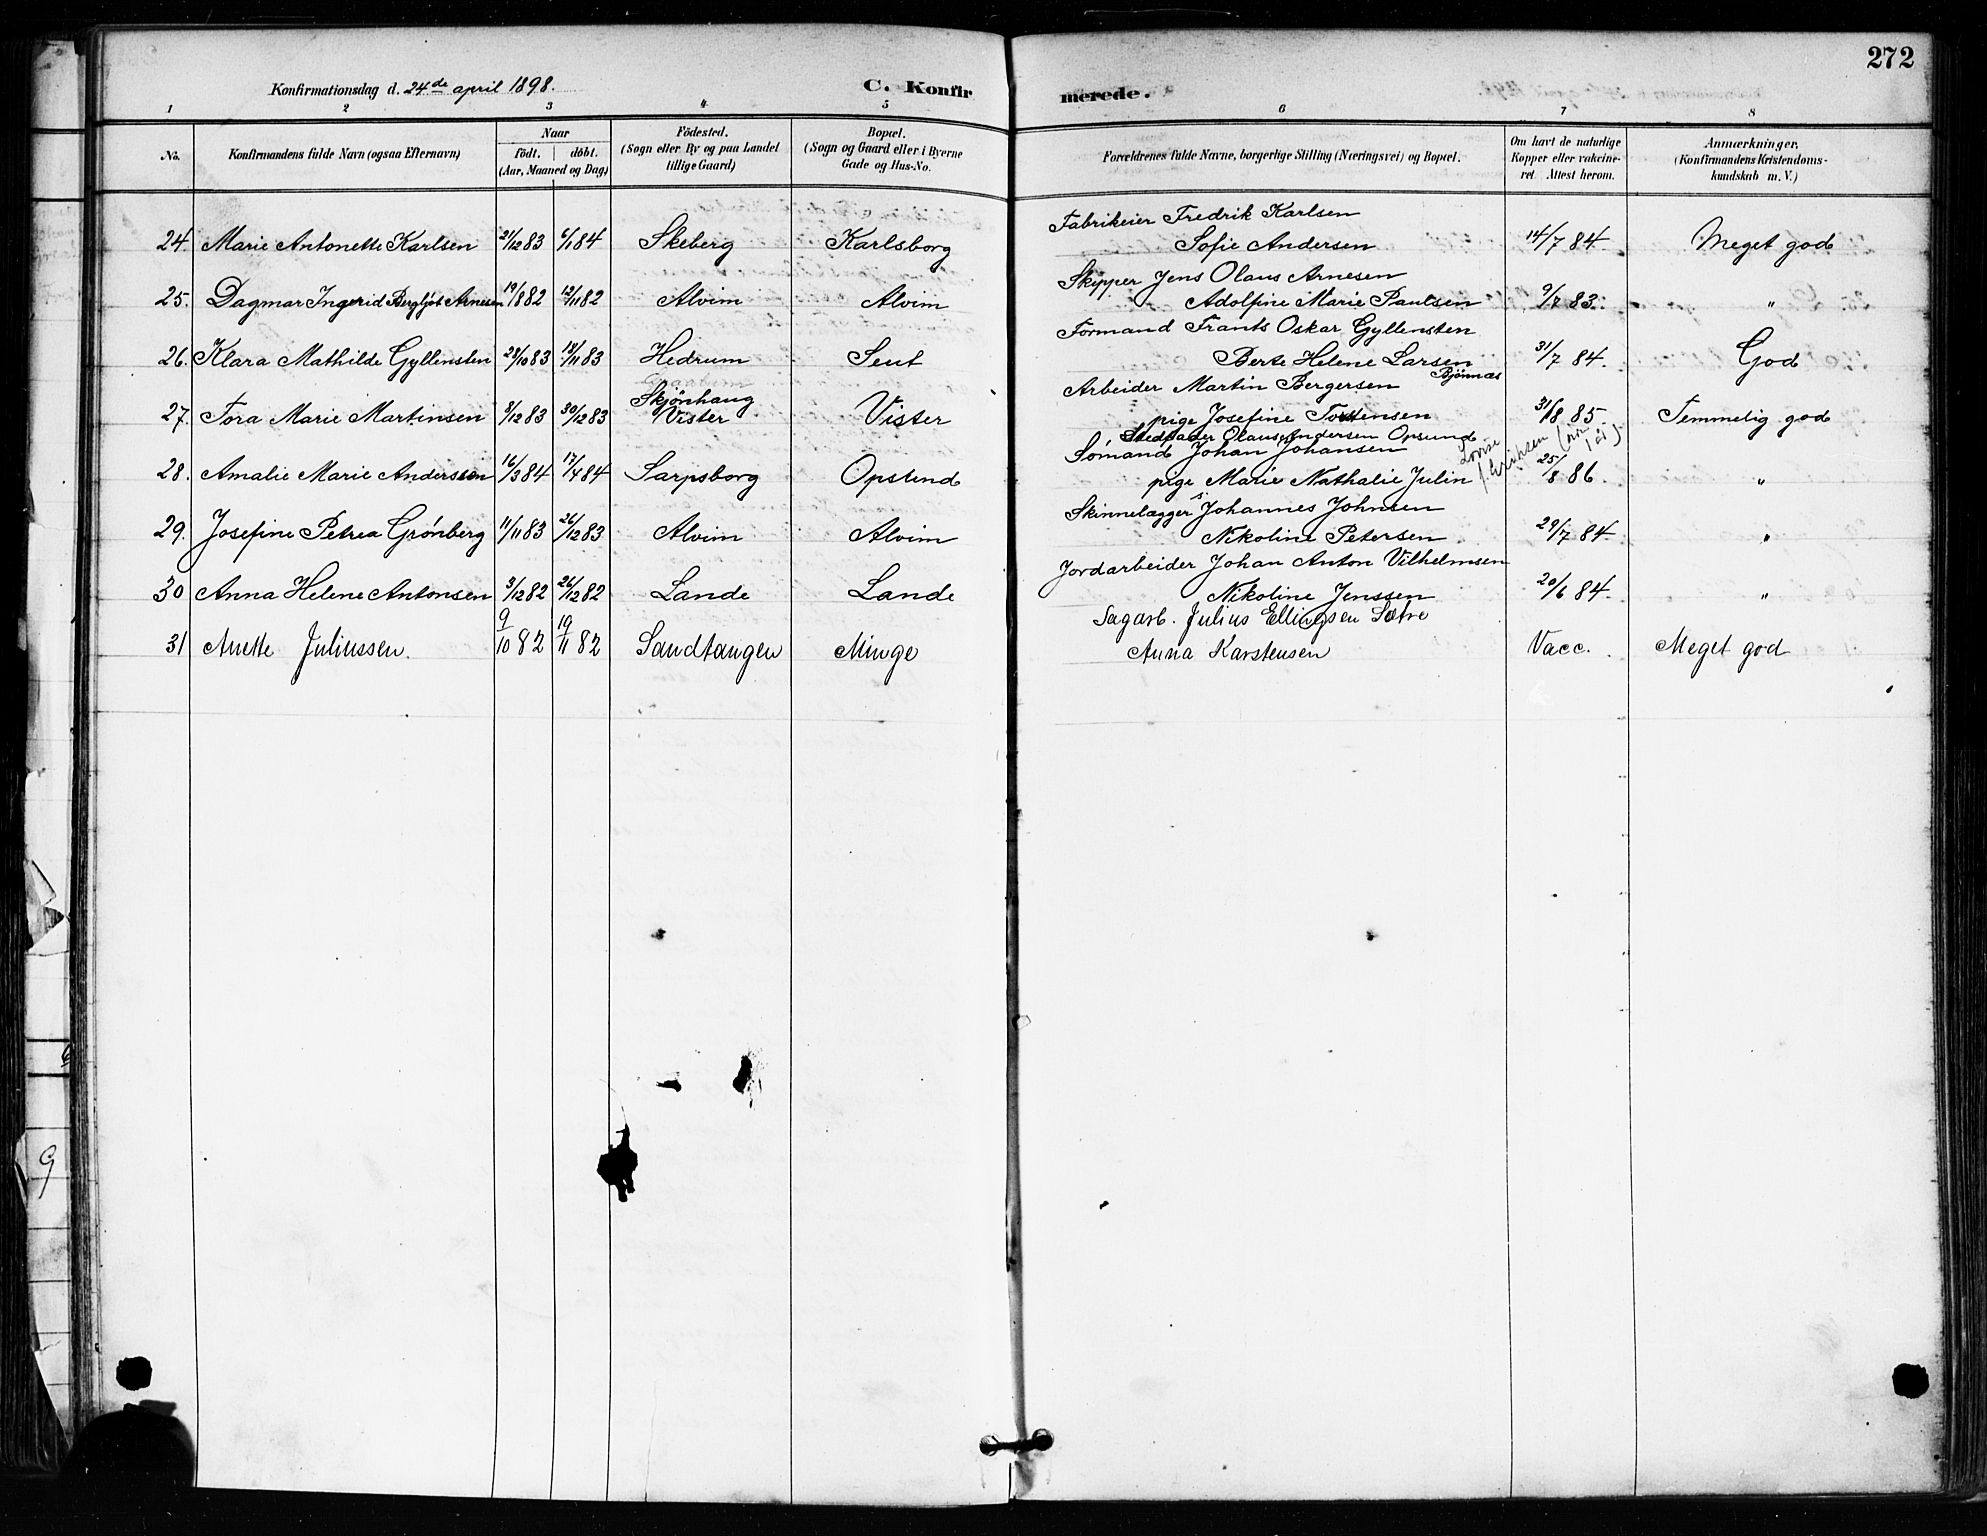 272
Konfirmationsdag d. 24de april 1898.
C. Konfirmerede.
1 2 3 4 5 6 7 8
No.
Konfirmandens fulde Navn (ogsaa Efternavn)
Naar
født. døbt.
(Aar, Maaned og Dag)
Födested.
(Sogn eller By og paa Landet
tillige Gaard)
Bopæl.
(Sogn og Gaard eller i Byerne
Gade og Hus-No.
Forældrenes fulde Navne, borgerlige Stilling (Næringsvei) og Bopæl.
Om havt de naturlige
Kopper eller vakcine-
ret. Attest herom.
Anmærkninger.
(Konfirmandens Kristendoms-
kundskab m. V.)
Fabrikeier Fredrik Karlsen
24. Marie Antonette Karlsen 21/12 83 6/1 84 Skeberg Karlsborg Sofie Andersen 14/7 84. Meget god
Skipper Jens Olaus Arnesen
25. Dagmar Ingerid Bergljot Arnesen 19/8 82 12/11 82 Alvim Alvim Adolfine Marie Paulsen 9/7 83. "
Formand Frants Oskar Gyllensten
26. Klara Mathilde Gyllensten 28/10 83 18/11 83 Hedrum Seut Berte Helene Larsen 31/7 84. God
Arbeider Martin Bergersen Bjönnæs
Skjønhaug
27. Tora Marie Martinsen 8/12 83 30/12 83 Vister Vister pige Josefine Torstensen 31/8 85 Temmelig god
Stedfader Olaus Andersen Opsund
Sømand Johan Johansen
28. Amalie Marie Anderssen 16/3 84 17/4 84 Sarpsborg Opsund pige Marie Nathalie Julin 25/8 86. "
Skinnelægger Johannes Johnsen
29. Josefine Petrea Grønberg 11/11 83 26/12 83 Alvim Alvim Nikoline Petersen 29/7 84 "
Jordarbeider Johan Anton Vilhelmsen
30 Anna Helene Antonsen 3/12 82 26/12 82 Lande Lande Nikoline Jenssen 20/6 84. "
Sagarb. Julius Ellingsen Sætre
31 Anette Juliussen. 9/10 82 19/11 82 Sandtangen Minge Anna Karstensen Vacc. Meget god
9